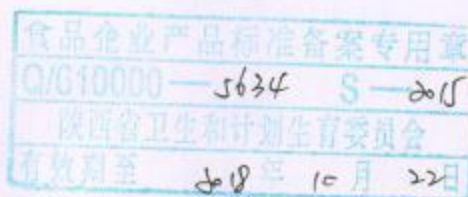 食品企业产品标准备案专用章
Q/610000—5634 S—2015
陕西省卫生和计划生育委员会
有效期至 2018年 10月 22日